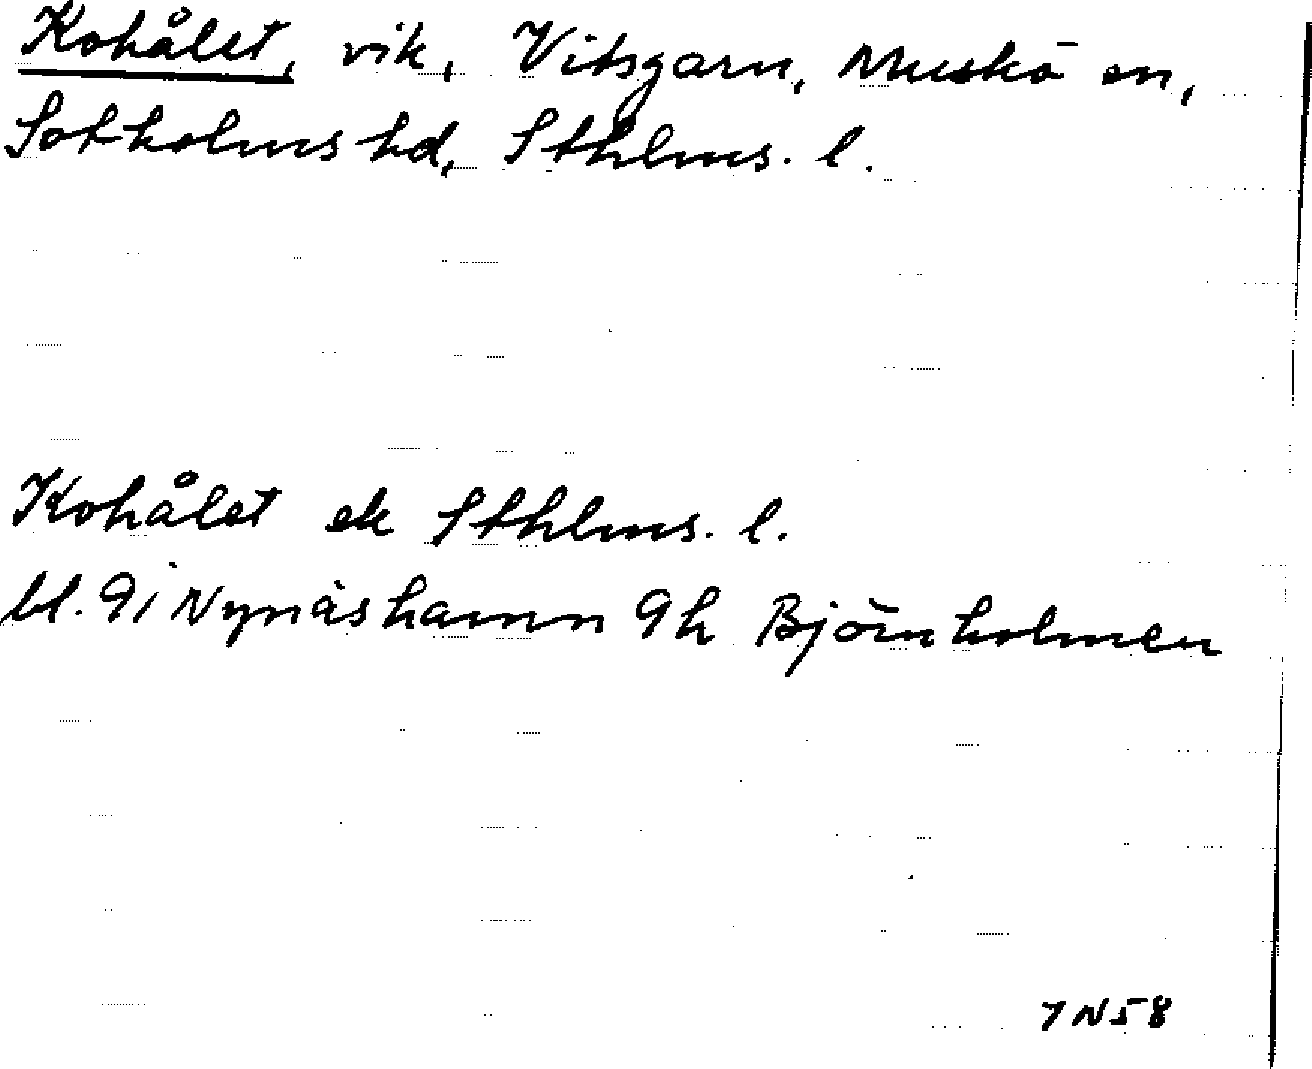 Kohålet, vik, Vitsgarn, Muskö sn,
Sotholms hd, Sthlms. l.
Kohålet ek Sthlms. l.
bl. 9i Nynäshamn 9h Björnholmen
7N58